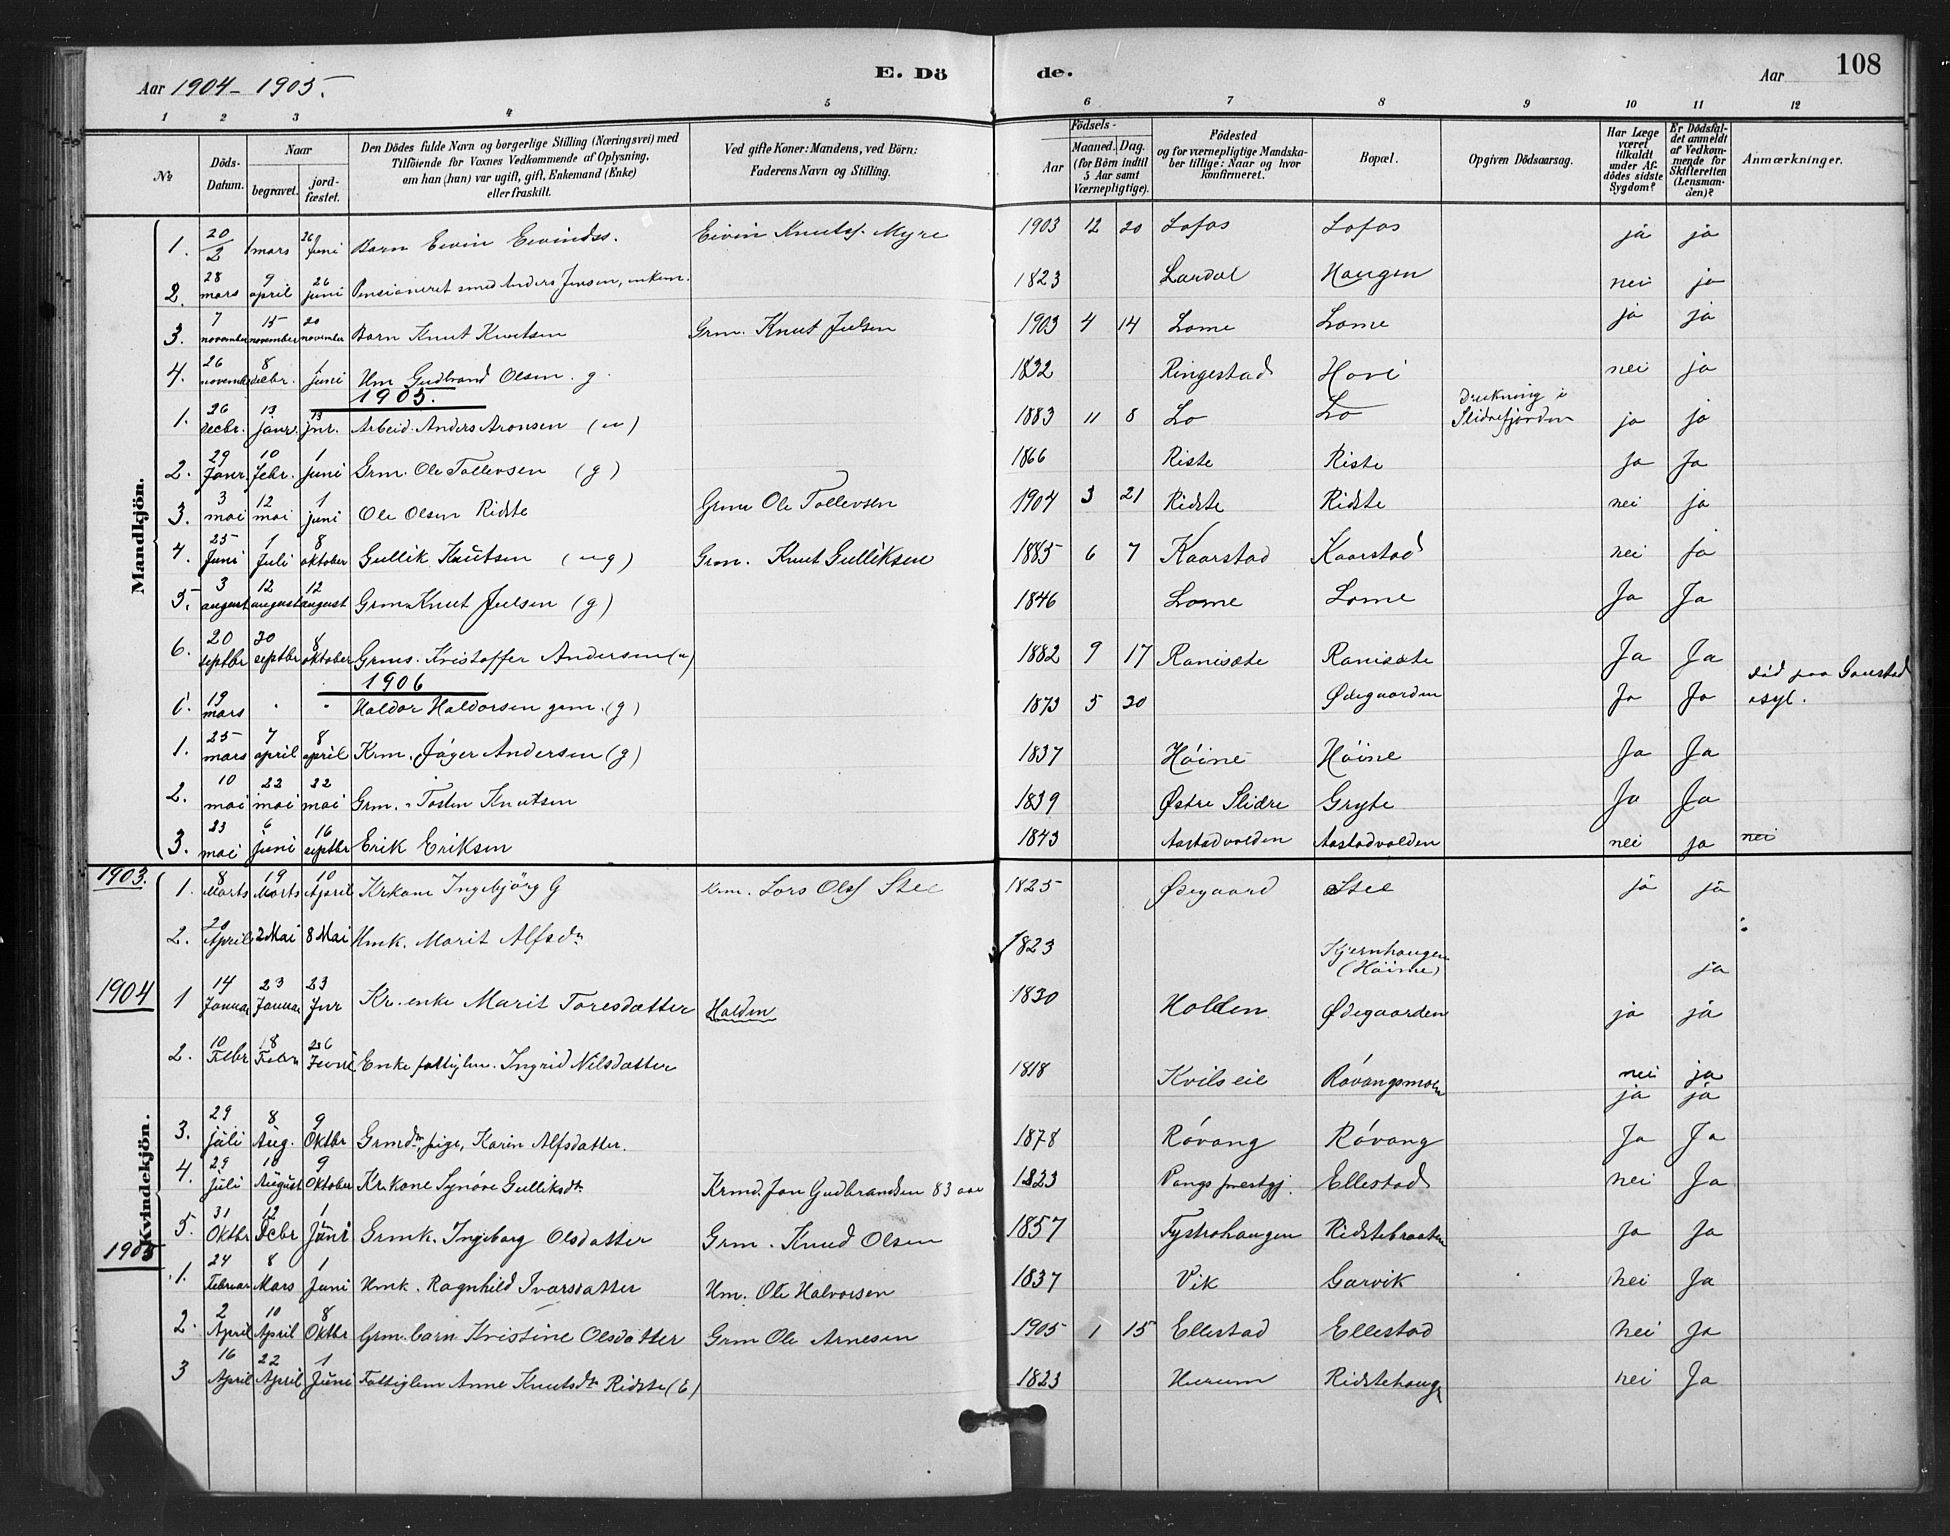 Aar 1904 - 1905.
E. Dö
de.
Aar
108
1 2 3 4 5 6 7 8 9 10 11 12
No
Döds-Datum.
Naar
begravet.
jord-fæstet.
Den Dödes fulde Navn og borgerlige Stilling (Næringsvei) med
Tilföiende for Voxnes Vedkommende af Oplysning,
om han (hun) var ugift, gift, Enkemand (Enke)
eller fraskilt.
Ved gifte Koner: Mandens, ved Börn:
Faderens Navn og Stilling.
Födsels-
Aar
Maaned. Dag.
(for Börn indtil
5 Aar samt
Værnepligtige).
Födested
og for værnepligtige Mandska-
ber tillige: Naar og hvor
konfirmeret.
Bopæl.
Opgiven Dödsaarsag.
Har Læge
været
tilkaldt
under Af-
dödes sidste
Sygdom?
Er Dödsfal-
det anmeldt
af Vedkom-
mende for
Skifteretten
(Lensman-
den)?
Anmærkninger.
Mandkjön.
1. 20/2 1 mars 26 Juni Barn Eivin Eivindss. Eivin Knutss. Myre 1903 12 20 Lofos Lofos ja ja
2. 28 mars 9 april 26 juni Pensioneret smed Anders Jensen, enkem. 1823 Lardal Haugen nei ja
3. 7 november 15 november 20 november Barn Knut Knutsen Grm. Knut Julsen 1903 4 14 Lome Lome ja ja
4. 26 november 8 decbr. 1 juni Hm Gudbrand Olsen. g. 1832 Ringestad Hovi nei ja
1905.
1. 26 decbr. 13 janr. 13 jnr. Arbeid. Anders Aronsen (u) 1883 11 8 Lo Lo Drukning i Slidrefjorden ja ja
2. 29 Janr. 10 Febr. 1 juni Grm. Ole Tollevsen (g) 1866 Riste Riste ja Ja
3. 3 mai 12 mai 1 juni Ole Olsen Ridste Grm Ole Tollevsen 1904 3 21 Ridste Ridste nei ja
4. 25 Juni 1 Juli 8 oktober Gullik Knutsen (ug) Grm. Knut Gulliksen 1885 6 7 Kaarstad Kaarstad nei ja
5. 3 august 12 august 12 august Grm Knut Julsen (g) 1846 Lome Lome Ja Ja
6. 20 septbr 30 septbr 8 oktober Grms. Kristoffer Andersen (u) 1882 9 17 Ranisæte Ranisæte Ja Ja
1906
19 mars " " Haldor Haldorsen gem. (g) 1873 5 30 Ødegaarden Ja Ja død paa Gaustad asyl.
1. 25 mars 7 april 8 april Krm. Jäger Andersen (g) 1837 Höine Höine Ja Ja
2. 10 mai 22 mai 22 mai Grm. Tosten Knutsen 1839 Østre Slidre Gryte Ja Ja
3. 23 mai 6 juni 16 septbr Erik Eriksen 1843 Aastadvolden Aastadvolden nei ja nei
Kvindekjön.
1903.
1. 8 Marts 19 Marts 10 April Krkone Ingebjörg G Krm. Lars Olss Stee 1825 Ødegaard Stee ja ja
2. 20 April 2 Mai 8 Mai Hmk. Marit Alfsdr 1823 Kjernhaugen (Höime) ja
1904
1 14 Januar 23 Januar 23 Jnr Kr. enke Marit Toresdatter Holden 1830 Holden Ødegaarden ja ja
2. 10 Febr 18 26 Juni Enke fattiglm. Ingrid Nilsdatter 1818 Kvilseie Rövangsmoen nei ja
ja ja
3. 29 juli 8 Aug. 9 Oktbr Grmdr pige, Karin Alfsdatter. 1878 Rövang Rövang Ja Ja
4. 29 juli 10 August 9 Oktober Kr.kone Synöve Gulliksdtr Krmd. Jon Gudbrandsen 83 aar 1823 Vangs prestgj. Ellestad nei Ja
5. 31 Oktbr 12 Febr 1 Juni Grmk. Ingeborg Olsdatter Grm. Knud Olsen 1857 Fystrohaugen Ridstebraaten Ja Ja
1905
1. 24 Februar 8 Mars 1 Juni Hmk. Ragnhild Ivarsdatter Hm. Ole Halvorsen 1837 Vik Garvik nei Ja
2. 2 April 10 April 8 Oktbr Grm. barn Kristine Olsdatter Grm Ole Arnesen 1905 1 15 Ellestad Ellestad nei Ja
3 16 April 22 April 1 Juni Fattiglem Anne Knutsdtr Ridste (E) 1823 Hurum Ridstehaug nei Ja